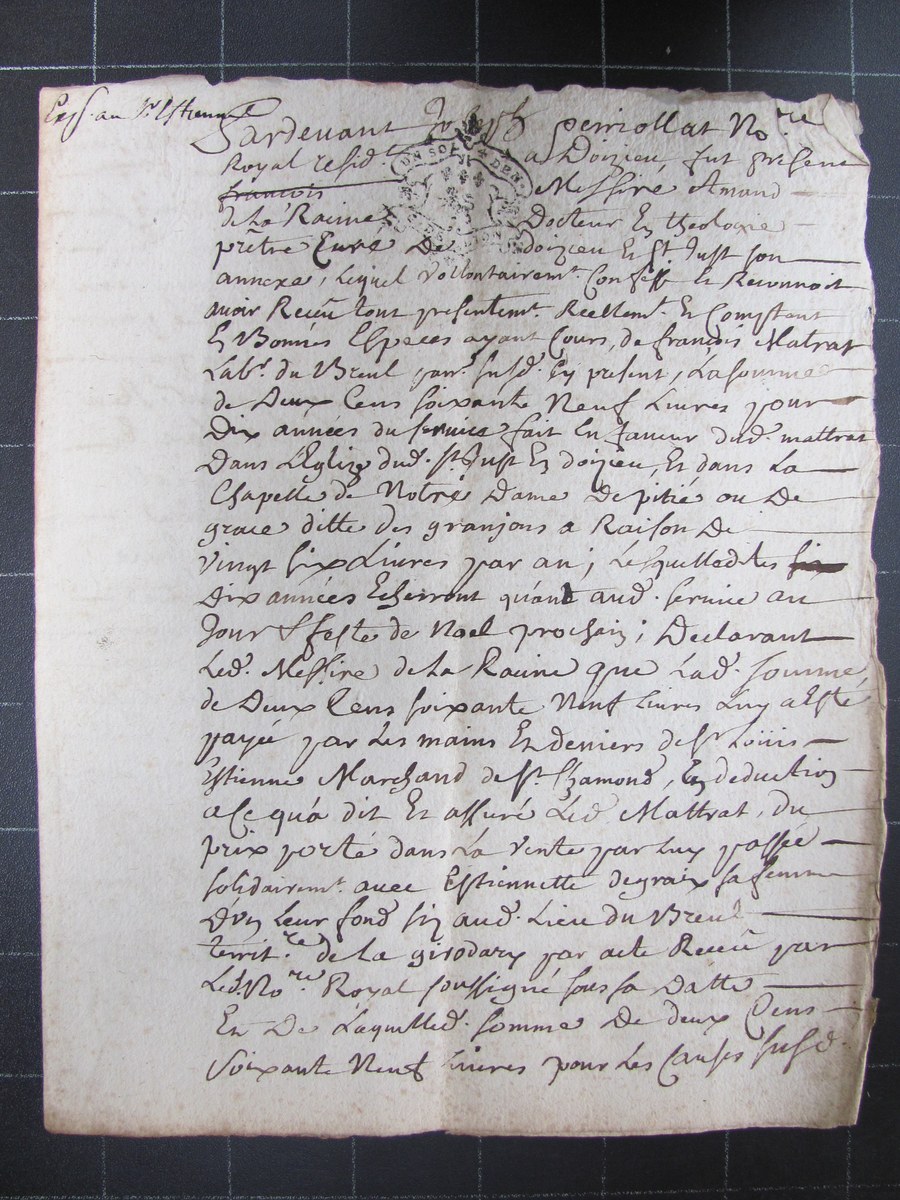 Exp. au Sr Estienne
Pardevant Joseph Perriollat Nore
Royal resid.t a Doizieu, fut present
francois Messire Amand
de La Raime Docteur En theologie
prêtre Curé De doizieu Et St. Just son
annexe, Lequel vollontairem.t Confesse Et Reconnoit
avoir Receü tout presentem.t Reellem.t Et Comptent
En Bonnes Especes ayant Cours, de françois Matrat
Lab.r du Breul parr. susd. Ey present, La somme
de Deux Cens soixante Neuf Livres pour
Dix années du service fait En faveur dud. mattrat
Dans L'Eglize dud. St. Just En doizieu, Et dans La
Chapelle de Notre Dame De pitié ou De
grace ditte des granjons a Raison De
vingt six Livres par an; Lesquelledites six
Dix années Echerront quand aud. service au
Jour & feste de Noel prochain; Declarant
Led. Messire de La Raime que Lad. somme
de Deux Cens soixante Neuf livres Luy a Esté
payée par Les mains Et deniers de Sr Loüis
Estienne Marchand de St. Chamond, En deduction
a Ce qu'a dit Et assuré Led. Mattrat, du
prix porté dans La vente par Luy passée
solidairem.t avec Estiennette degraix sa femme
D'un Leur fond siz aud. Lieu du Breul
territ.re de La girodary par acte Receu par
Led. Nore Royal soussigné sous sa Datte
Et De Laquelled. somme De deux Cens
Soixante Neuf Livres pour Les Causes susd.
UN SOL
DEN